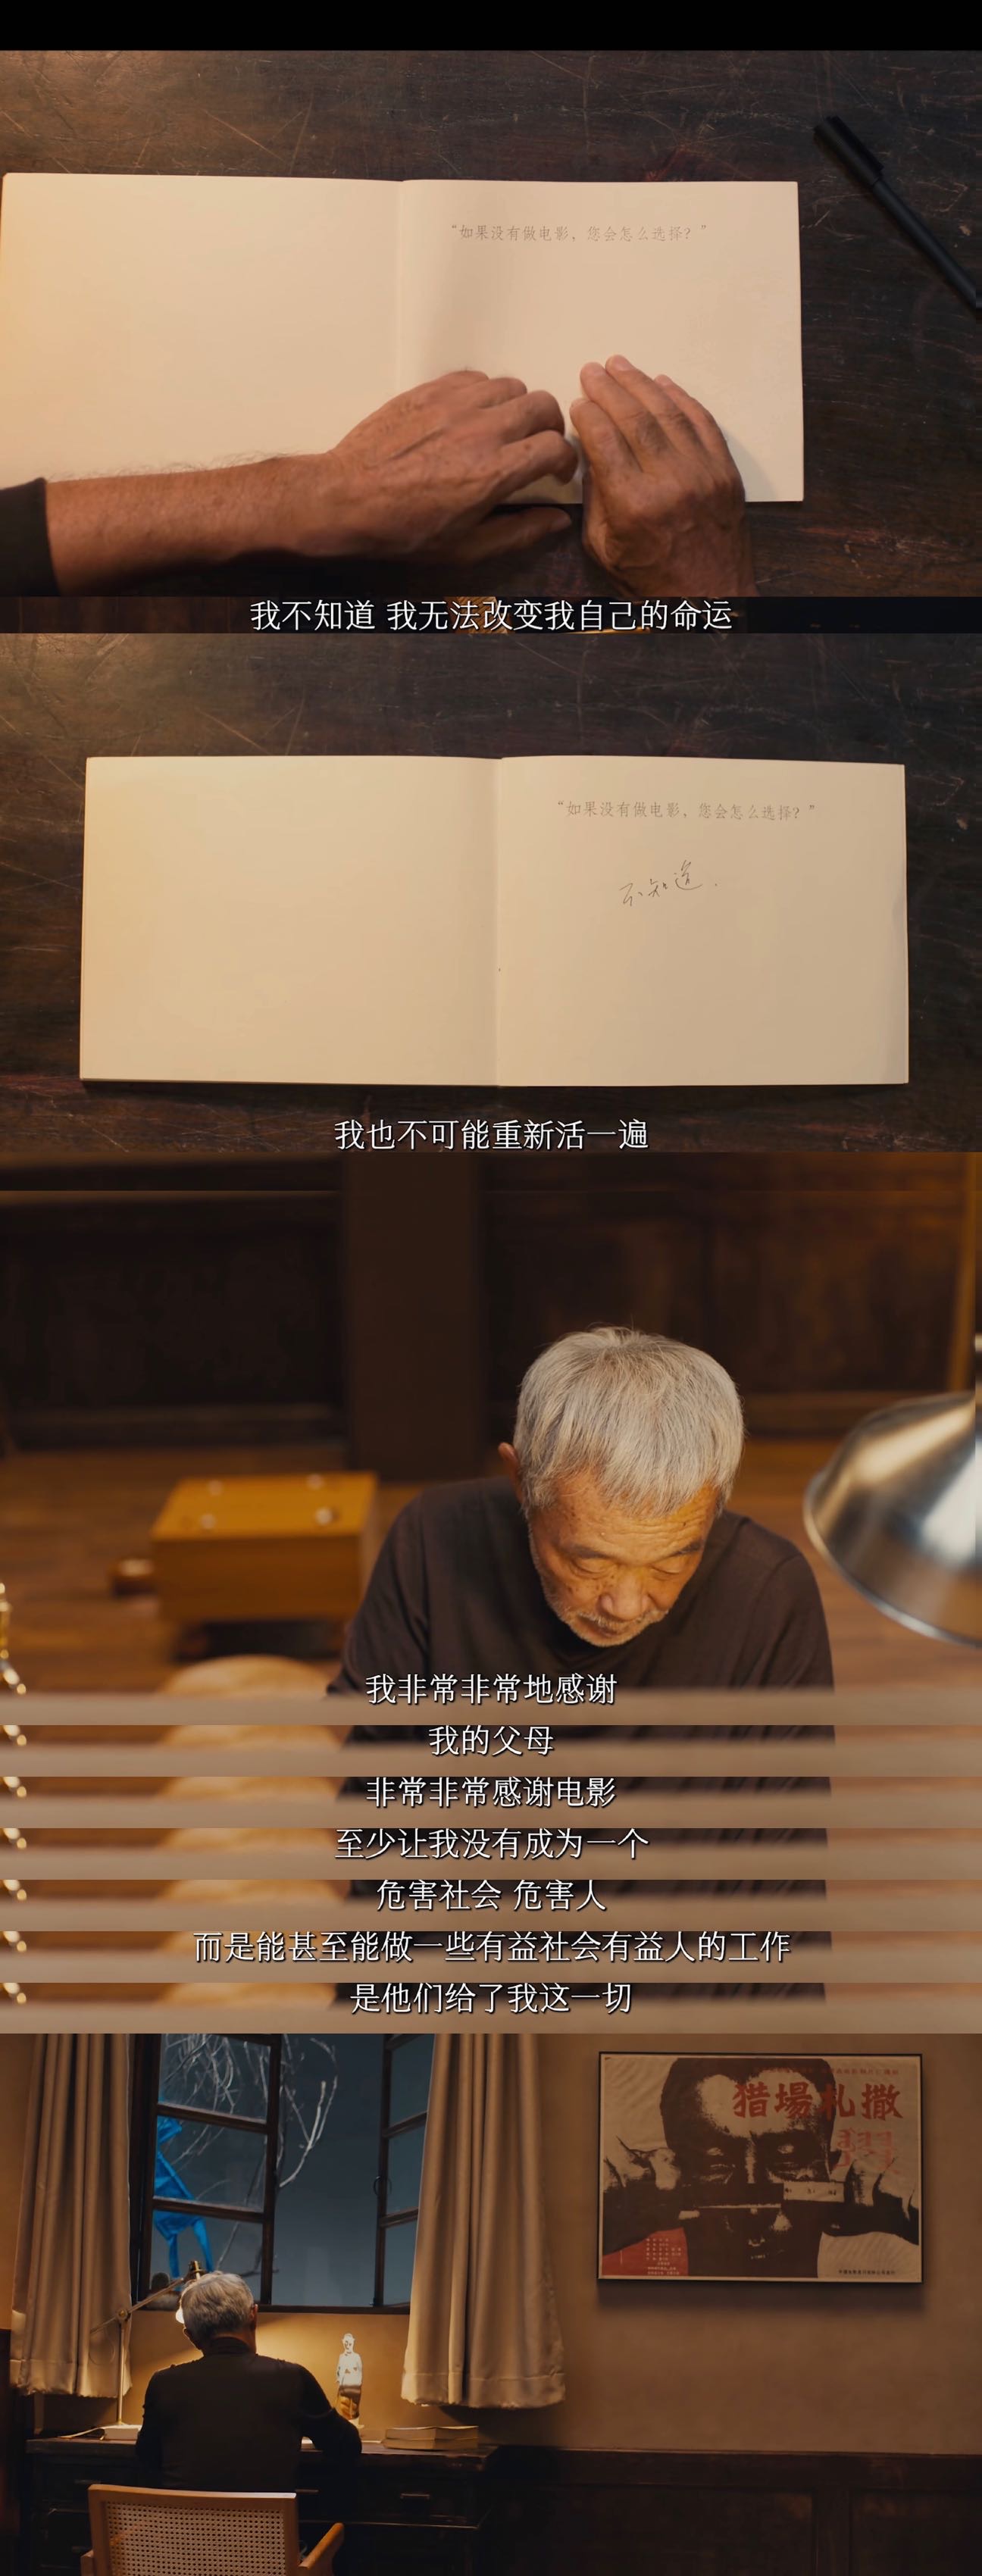 “如果没有做电影，您会怎么选择？”
我不知道 我无法改变我自己的命运
“如果没有做电影，您会怎么选择？”
不知道.
我也不可能重新活一遍
我非常非常地感谢
我的父母
非常非常感谢电影
至少让我没有成为一个
危害社会 危害人
而是能甚至能做一些有益社会有益人的工作
是他们给了我这一切
猎場札撒